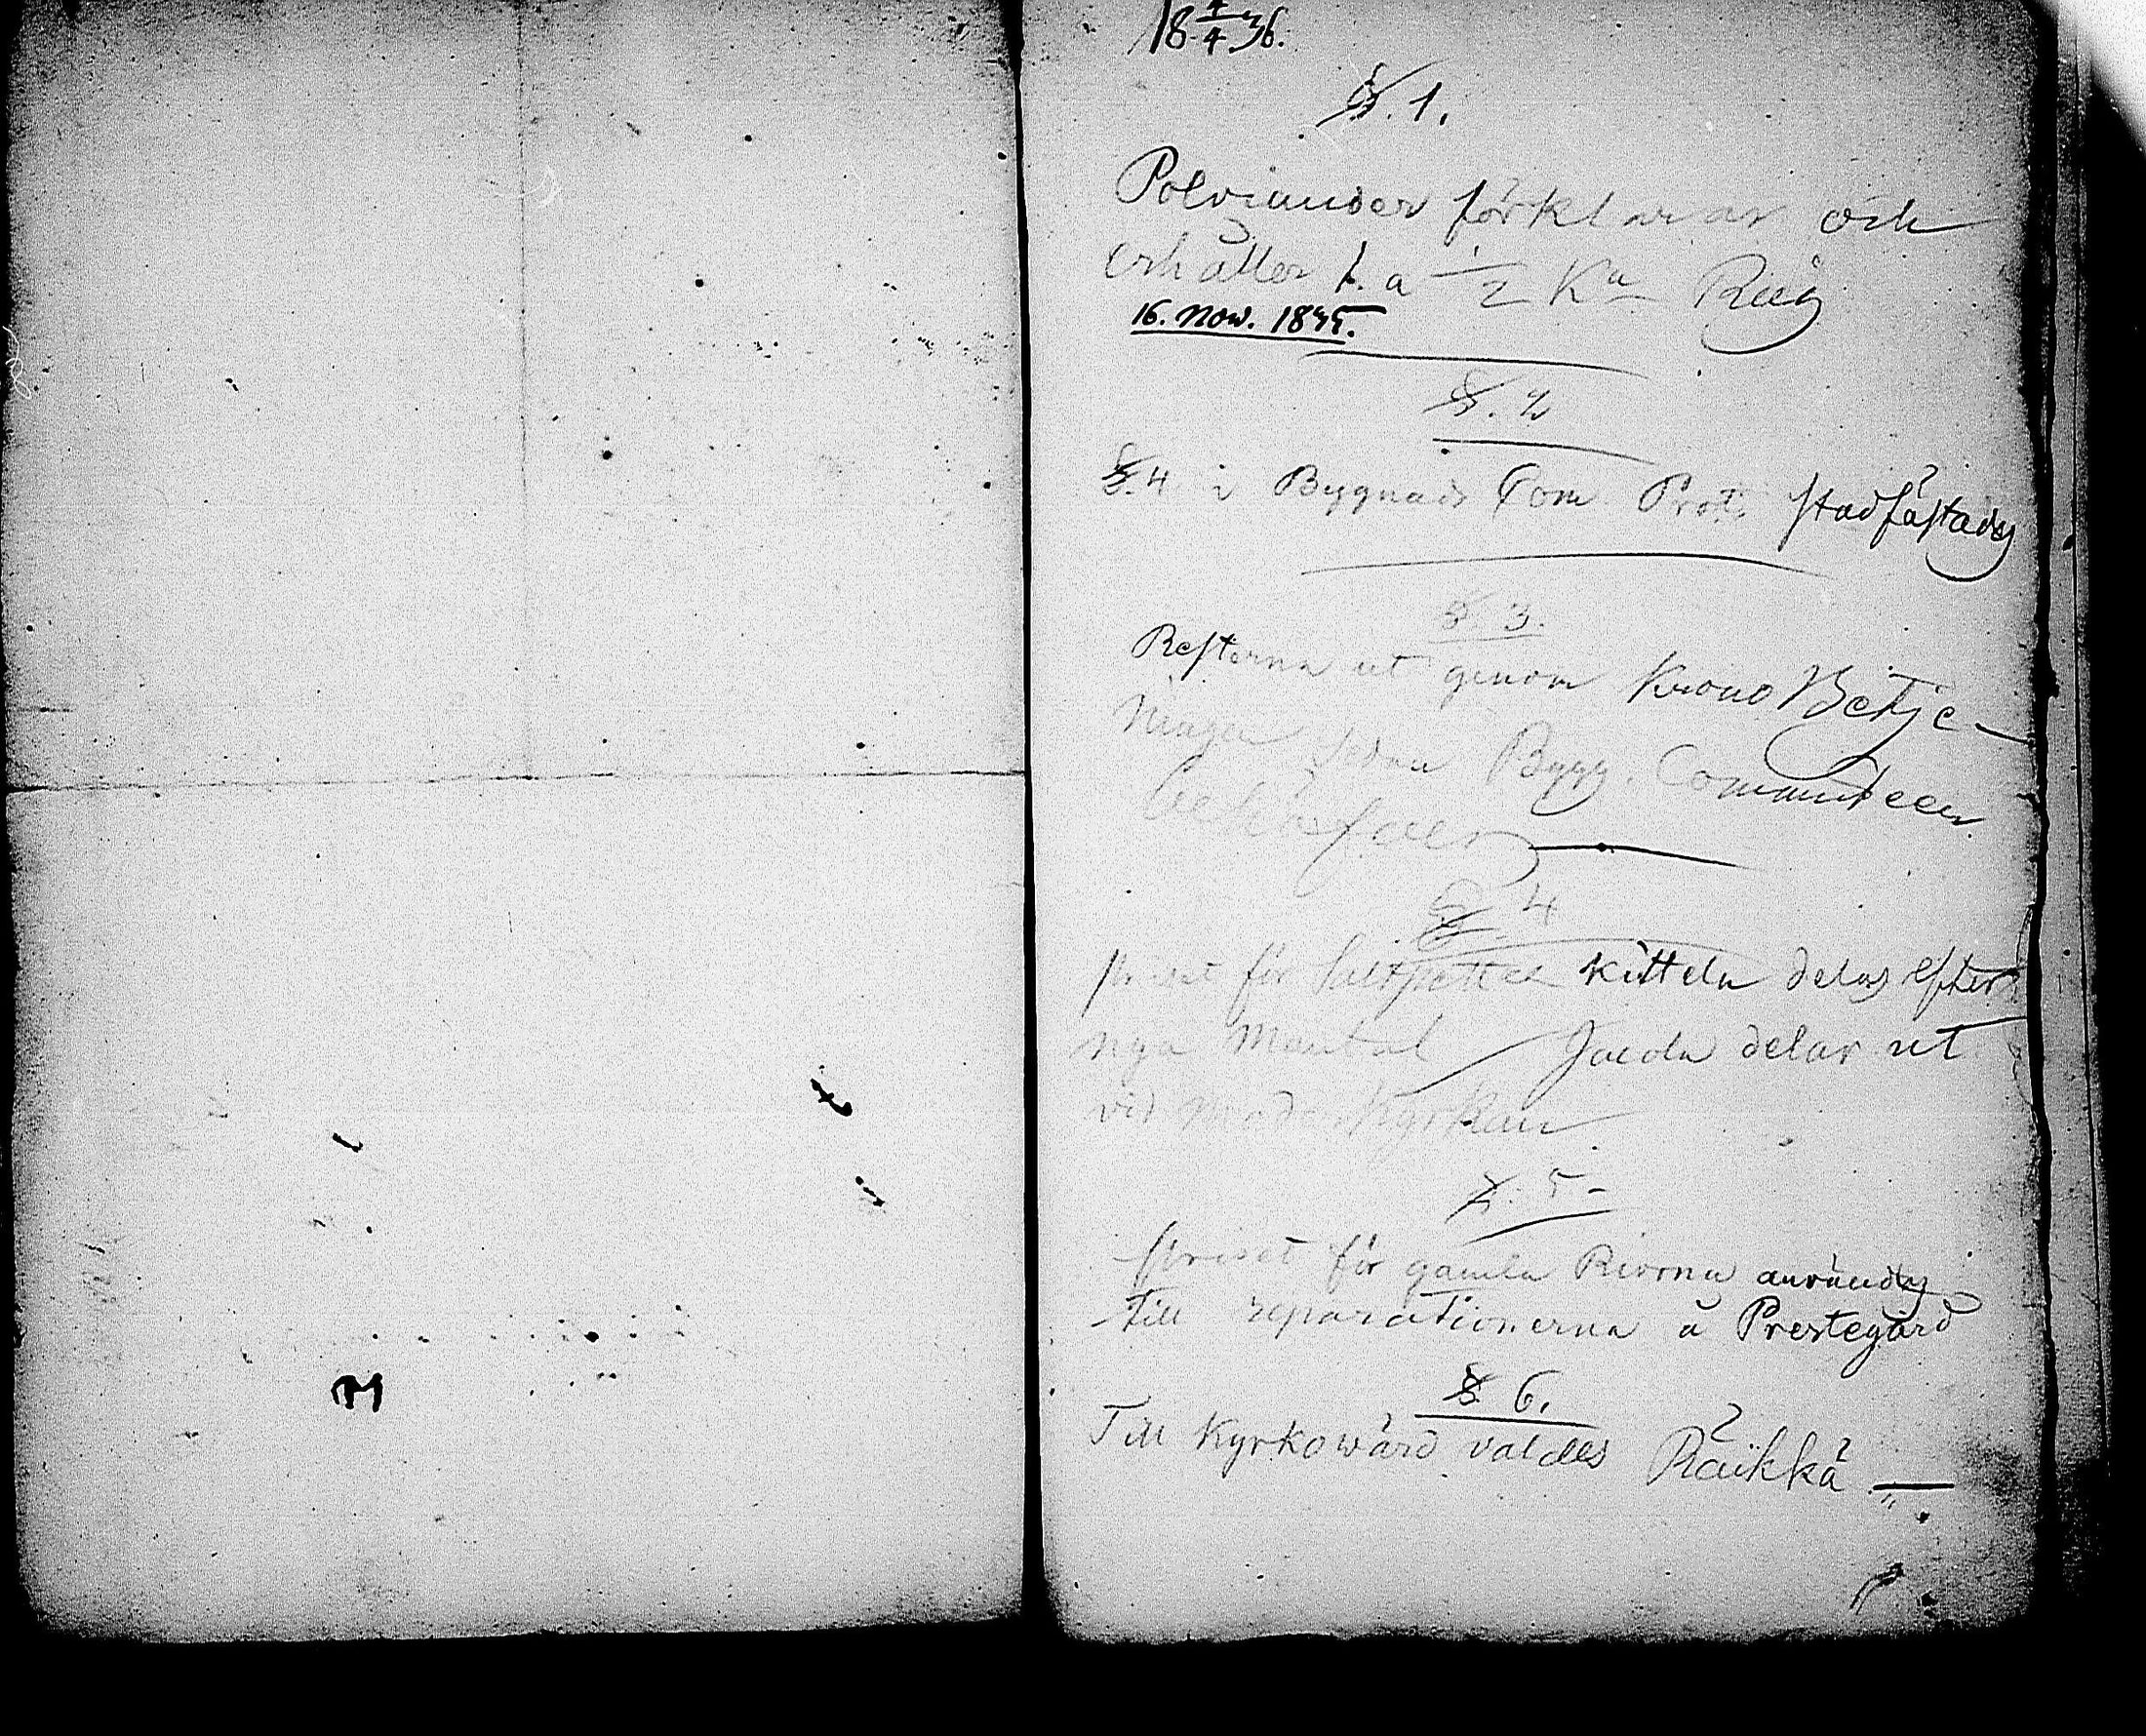 18 4/4 36.
§. 1.
Polviander förklarar och
erhåller f. a 1/2 Ka Råg
16. Nov. 1835.
§. 2
§. 4 i Bygnads Com Prot. stadfästades
§ 3.
Resterna ut genom Krono Betje-
ninga Bygg. Committeen
§ 4
priset för Saltpetter kitteln delas efter
nya Mantal Jacola delar ut
vid Moder Kyrkan
§. 5
priset för gamla Riorna användes
till reparationerna å Prestegård
§ 6.
Till Kyrkowärd valdes Räikkä